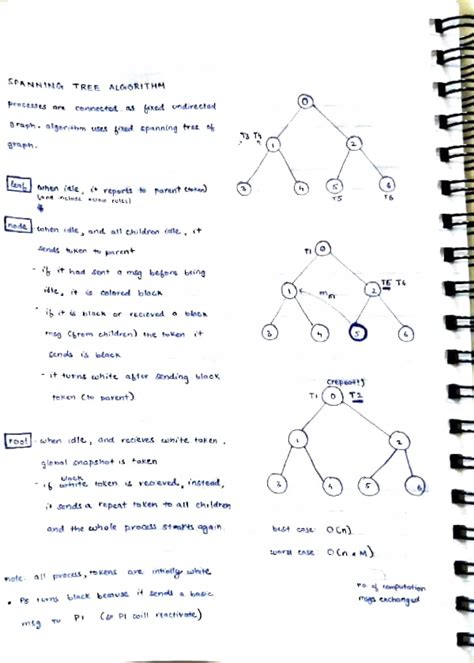 SPANNING TREE ALGORITHM
processes are connected as fixed undirected
graph. algorithm uses fixed spanning tree of
graph.
leaf when idle, it reports to parent (token)
(and include rules)
node when idle, and all children idle, it
sends token to parent
- if it had sent a msg before being
idle, it is colored black
- if it is black or recieved a black
msg (from children) the token it
sends is black
- it turns white after sending black
token (to parent)
root - when idle, and recieves white token,
global snapshot is taken
- if black token is recieved, instead,
it sends a repeat token to all children
and the whole process starts again.
note: all process, tokens are intially white
• P5 turns black because it sends a basic
msg to P1 (so P1 will reactivate)
0
T3 T4
1
2
3
4
5
6
T5
T6
T1
0
1
m
2
T5 T6
3
4
5
6
(repeat!)
T1
0
T2
1
2
3
4
5
6
best case O(n)
worst case O(n * M)
no. of computation
msgs exchanged